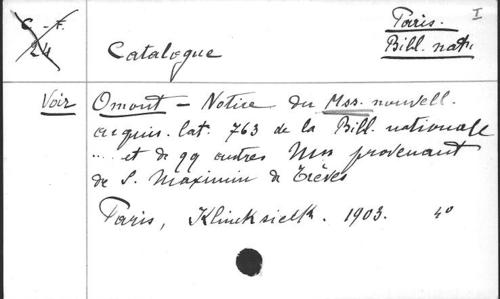 I
C - F.
24
Paris.
Bibl. natle
Catalogue
Voir Omont – Notice du Mss. nouvell.
acquis. lat. 763 de la Bibl. nationale
... et de qq autres Mss provenant
de S. Maximin de Trèves
Paris, Klincksieck. 1903. 4°